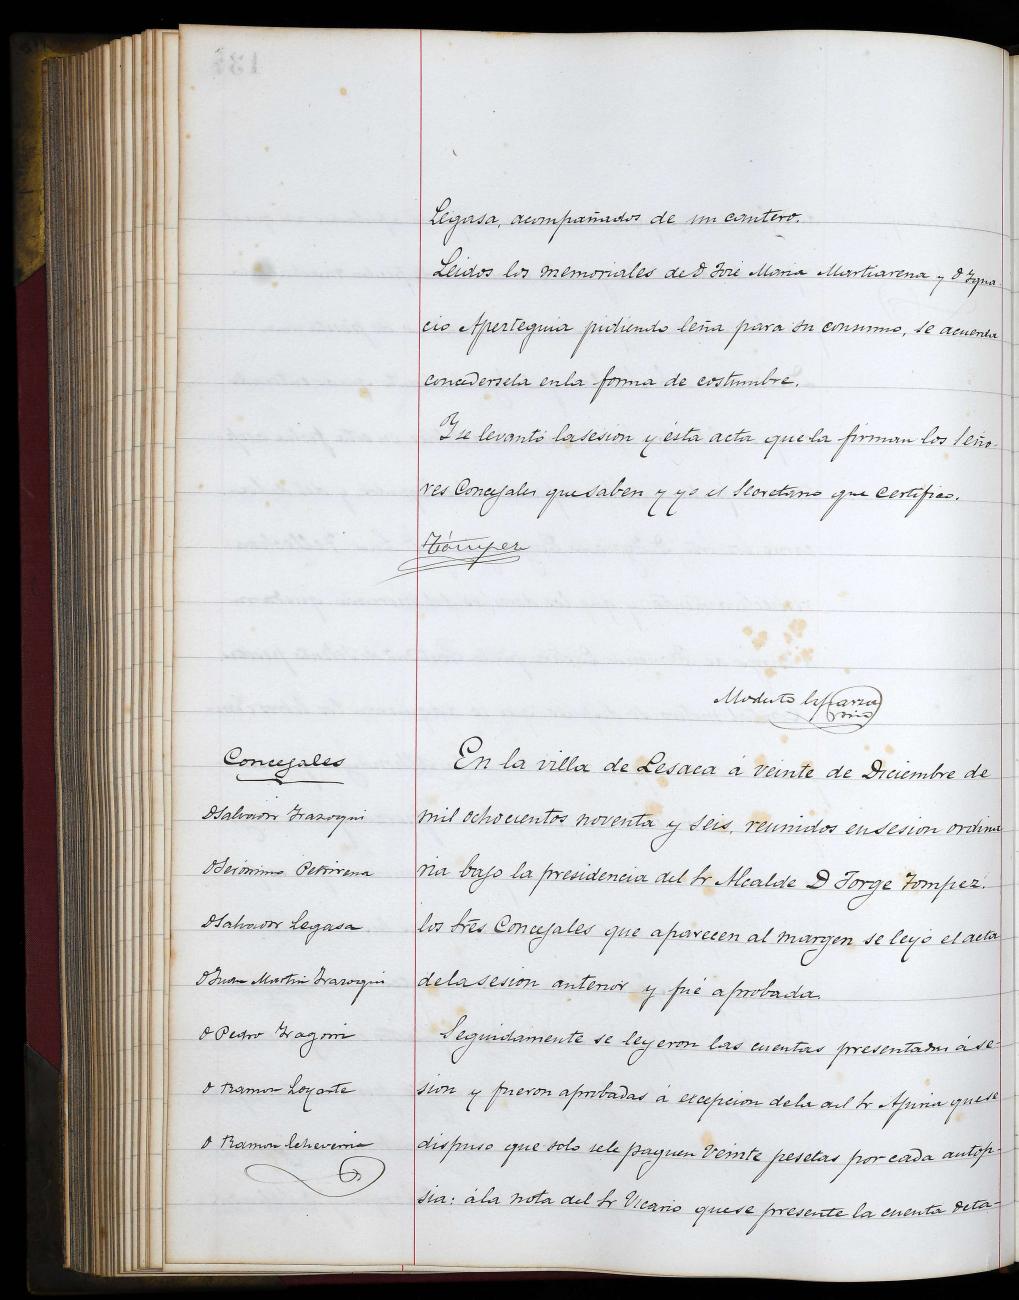 Legasa, acompañados de un cantero.
Leidos los memoriales de D José Maria Martiarena y D Ygna
cio Apezteguia pidiendo leña para su consumo, se acuerda
concedersela en la forma de costumbre.
Y se levantó la sesion y ésta acta que la firman los Seño-
res Concejales que saben y yo el Secretario que certifico.
Tómpez
Modesto
Concejales
D Salvador Yrazoqui
D Gerónimo Petrirena
D Salvador Legasa
D Juan Martin Yrazoqui
D Pedro Yragorri
D Ramon Loyarte
D Ramon Echeverria
En la villa de Lesaca á veinte de Diciembre de
mil ochocientos noventa y seis, reunidos en sesion ordina
ria bajo la presidencia del Sr Alcalde D Jorge Tompez.
los Sres Concejales que aparecen al margen se leyó el acta
de la sesion anterior y fué aprobada.
Seguidamente se leyeron las cuentas presentadas á se-
sion y fueron aprobadas á excepcion de la del Sr que se
dispuso que solo se le paguen veinte pesetas por cada autop-
sia: á la nota del Sr Vicario que se presente la cuenta deta-